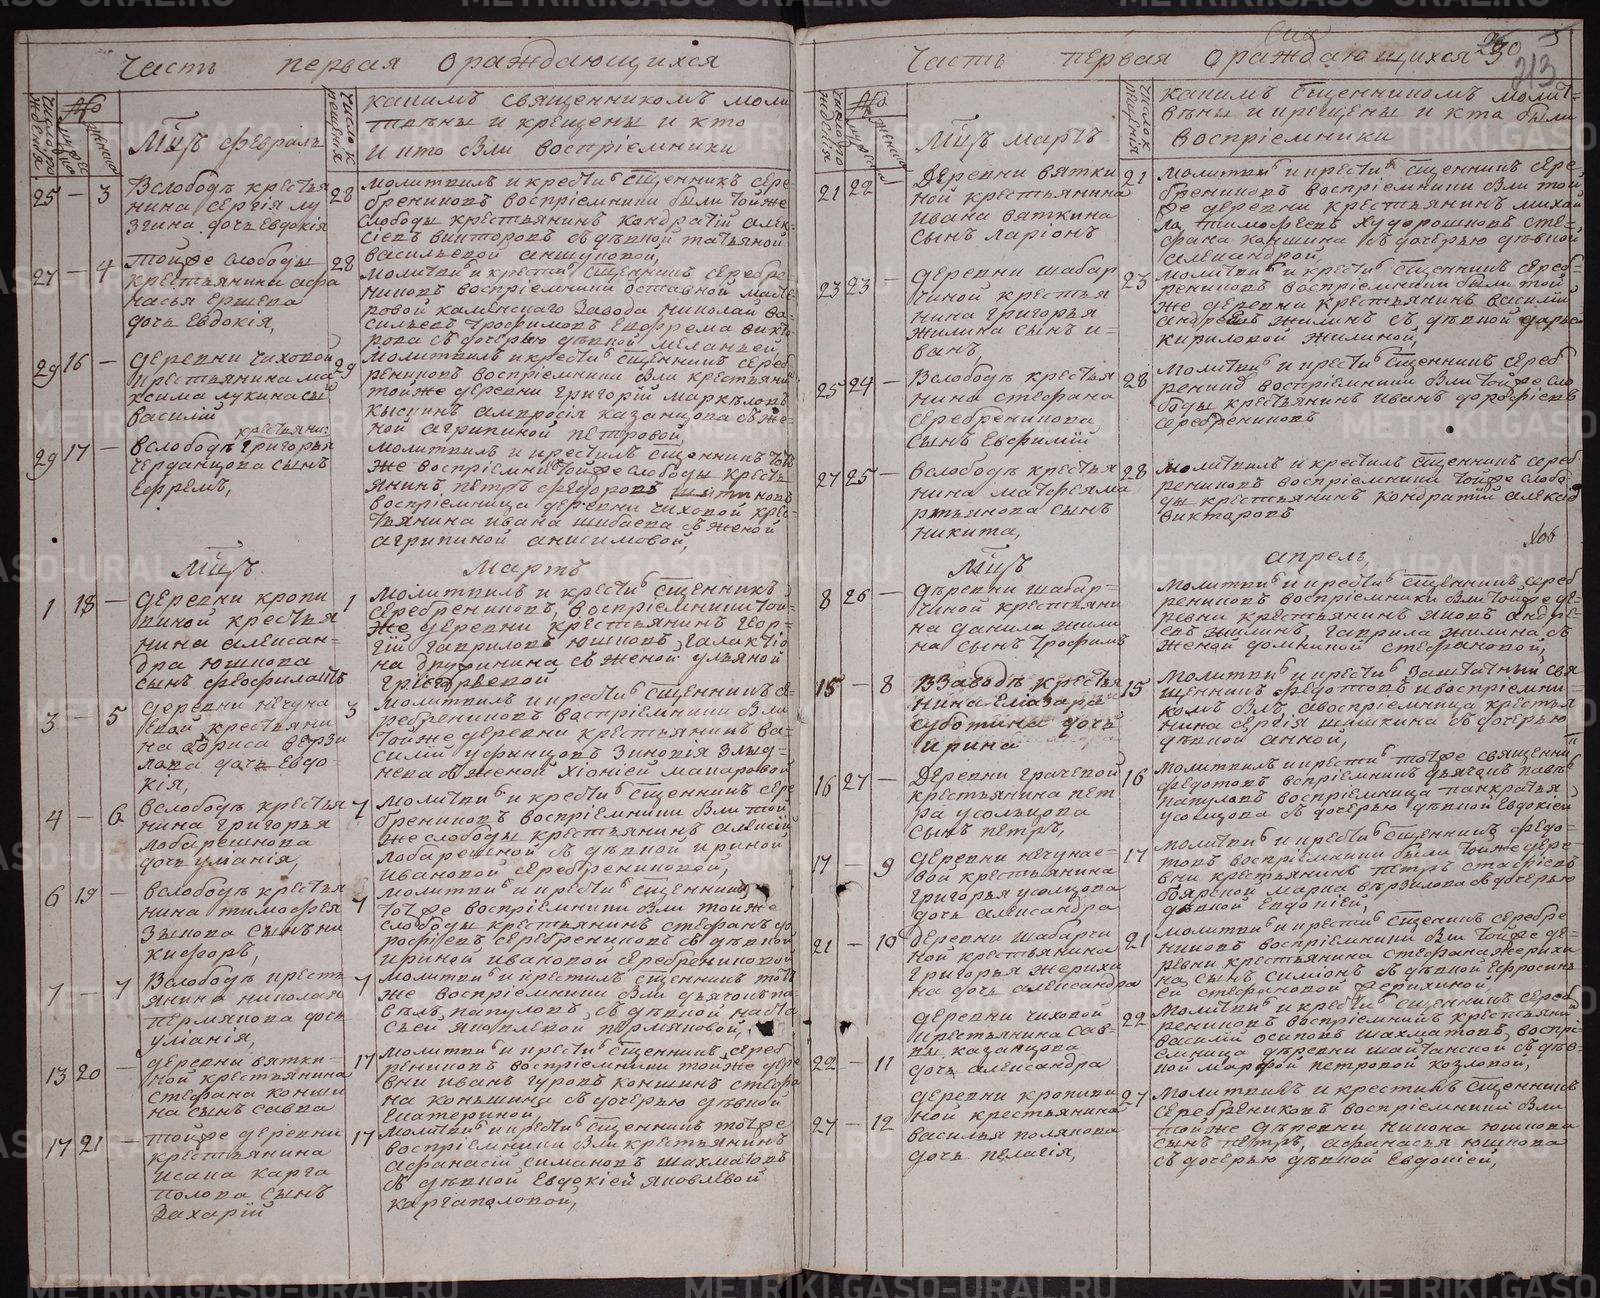 Часть первая Ораждающихся
Мцъ февраль
каким священником моли
твены и крещены и кто
и кто бли восприемники
25 — 3 Вслободѣ крестья 28
нина сергія лу
згина дочь Евдокія
молитвилъ и крестиᵘ сщенникъ сере
брениковъ восприемники были тойже
слободы крестьянинъ кондратій алек
сіевъ викторовъ съ дѣвкой татьяной
васильевой
27 — 4 тойже слободы 28
крестьянина афа
насья Ершева
дочь Евдокія,
молитвиᵘ и крестиᵘ сщенникъ серебре
никовъ восприемники отставной масте
ровой каменского завода николай ва
сильевъ трофимовъ Ефрема викто
рова съ дочерью дѣвкой меланьей,
29 16 — деревни чиховой 29
крестьянина ма
ксима лукина сы
василій
молитвилъ и крестиᵘ сщенникъ сереб
рениковъ восприемники бли крестьяни
тойже деревни григорій маркѣловъ
амвросія казанцова съ же
ной агрипиной петровой,
29 17 — вслободѣ григорья
крестьяни:
черданцова сынъ
Ефремъ,
молитвилъ и крестилъ сщенникъ тотъ
же восприемники тойже слободы кресть
янинъ петръ федоровъ
восприемница деревни чиховой крес
тьянина ивана шибаева съ женой
агрипиной анисимовой,
Мцъ Мартъ
1 18 — деревни кропи 1
виной крестья
нина алексан
дра юшкова
сынъ феофилактъ
молитвилъ и крестиᵘ сщенникъ
серебрениковъ, восприемники той
же деревни крестьянинъ геор
гій гавриловъ юшковъ, галактіо
на дружинина съ женой ульяной
григорьевой
3 — 5 деревни нечуна 3
евой крестьяни
на бориса верзи
лова дочь Евдо
кія,
молитвилъ и крестиᵘ сщенникъ се
ребрениковъ восприемники бли
тойже деревни крестьянинъ ва
силій усольцовъ зиновія злыд
нева съ женой хіоніей макаровой
4 — 6 вслободѣ крестья 7
нина григорья
лобарешнова
дочь уліанія,
молитвиᵘ и крестиᵘ сщенникъ сере
брениковъ восприемники бли той
же слободы крестьянинъ алексій
съ дѣвкой ириной
ивановой серебрениковой,
6 19 — вслободѣ крестья 7
нина тимофея
зыкова сынъ ни
кифоръ,
молитвиᵘ и крестиᵘ сщенникъ
тотже восприемники бли тойже
слободы крестьянинъ стефанъ до
рофіевъ серебрениковъ съ дѣвкой
ириней ивановой серебрениковой
7 — 7 Вслободѣ кресть 7
янина николая
пермякова дочь
уліанія,
молитвиᵘ и крестилъ сщенникъ тотъ
же восприемники бли дьячокъ па
велъ папуловъ, съ дѣвкой наста
сьей яковлевой пермяковой,
13 20 — деревни вятки 17
ной крестьянина
стефана конши
на сынъ савва
молитвиᵘ и крестиᵘ сщенникъ сереб
рениковъ восприемники тойже дере
вни иванъ гуровъ коншинъ стефа
на коньшина съ дочерью дѣвкой
Екатериной,
17 21 — тойже деревни 17
крестьянина
исака карга
полова сынъ
Захарій
молитвиᵘ и крестиᵘ сщенникъ тотже
восприемники бли крестьянинъ
афанасій симановъ шахматовъ
съ дѣвкой Евдокіей яковлевой
каргаполовой,
Часть первая Ораждающихся
213
Мцъ мартъ
каким сщенником молит
вѣны и крещены и кто были
восприемники
21 22 — Деревни вятки 21
ной крестьянина
ивана вяткина
сынъ ларіонъ
молитвиᵘ и крестиᵘ сщенникъ сере
брениковъ восприемники бли той
же деревни крестьянинъ михай
ла тимофеевъ худорошковъ сте
фана коншина съ дочерью дѣвкой
александрой,
23 23 — деревни шабар 23
чиной крестья
нина григорья
жилина сынъ и
ванъ,
молитвиᵘ и крестиᵘ сщенникъ сереб
рениковъ восприемники были той
же деревни крестьянинъ василій
андреевъ жилинъ съ дѣвкой дарьей
кириловой жилиной,
25 24 — Вслободѣ крестья 28
нина стефана
серебреникова
сынъ Евфимій
молитвиᵘ и крестиᵘ сщенникъ сереб
ренико восприемники бли тойже сло
боды крестьянинъ иванъ дорофіевъ
серебрениковъ
27 25 — вслободѣ крестья 28
нина матфея ма
ртьянова сынъ
никита,
молитвилъ и крестилъ сщенникъ сереб
рениковъ восприемники тойже слобо
ды крестьянинъ кондратій алексѣ
викторовъ
Мцъ апрель,
8 26 — дѣревни шабар
чиной крестьяни
на данила жили
на сынъ трофимъ
молитвиᵘ и крестиᵘ сщенникъ сереб
рениковъ восприемники бли тойже де
ревни крестьянинъ яковъ андре
евъ жилинъ, гаврила жилина съ
женой домникой стефановой,
15 — 8 Взаводѣ крестья 15
нина Елазара
суботина дочь
ирина
молитвиᵘ и крестиᵘ заштатный свя
щенникъ федотовъ и восприемни
комъ былъ, авосприемница крестья
нина сергія шишкина съ дочерью
дѣвкой анной,
16 27 — Деревни грачевой 16
крестьянина пет
ра усольцова
сынъ петръ,
молитвилъ и крестиᵘ тотже священни
федотовъ восприемникъ дьячокъ павелъ
папуловъ восприемница панкратья
усольцова съ дочерью дѣвкой Евдокіей
17 — 9 деревни нечунае 17
вой крестьянина
григорья усольцова
дочь александра
молитвиᵘ и крестиᵘ сщенникъ федо
товъ восприемники были тойже дере
вни крестьянинъ петръ
боярской марка вѣрзилова съ дочерью
дѣвкой Евдокіей,
21 — 10 Деревни шабарчи 21
ной крестьянина
григорья жерихи
на дочь александра
молитвиᵘ и крестиᵘ сщенникъ серебре
никовъ восприемники бли тойже де
ревни крестьянина стефана жерихи
на, сынъ симіонъ съ дѣвкой Ефросинь
ей стефановой жерихиной,
22 — 11 деревни чиховой 22
крестьянина сав
вы казанцова
дочь александра
молитвиᵘ и крестиᵘ сщенникъ сереб
рениковъ восприемникъ крестьяни
василій осиповъ шахматовъ, воспри
емница деревни шайтанской съ дѣв
кой марфой петровой козловой,
27 — 12 деревни кропиви 27
ной крестьянина
василья полякова
дочь пелагія,
молитвилъ и крестилъ сщенникъ
серебрениковъ восприемники бли
тойже дѣревни никона юшкова
сынъ петръ, афанасья юшкова
съ дочерью дѣвкой Евдокіей,
METRIKI.GASO-URAL.RU